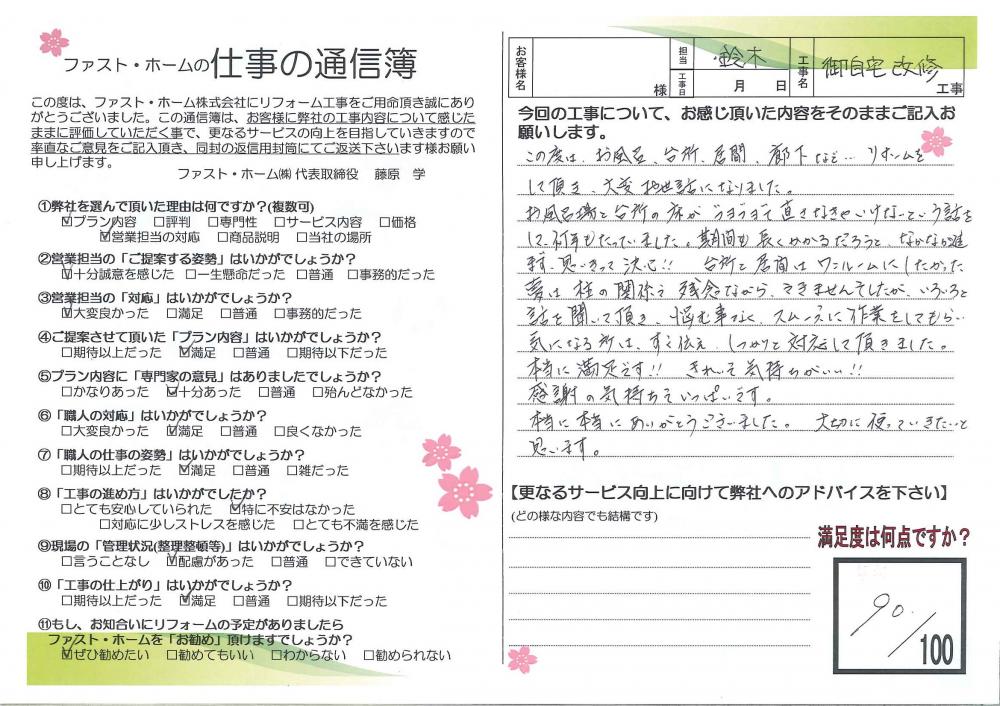 ファスト・ホームの仕事の通信簿
この度は、ファスト・ホーム株式会社にリフォーム工事をご用命頂き誠にあり
がとうございました。この通信簿は、お客様に弊社の工事内容について感じた
ままに評価していただく事で、更なるサービスの向上を目指していきますので
率直なご意見をご記入頂き、同封の返信用封筒にてご返送下さいます様お願い
申し上げます。
ファスト・ホーム㈱ 代表取締役 藤原 学
①弊社を選んで頂いた理由は何ですか?(複数可)
☑プラン内容 □評判 □専門性 □サービス内容 □価格
☑営業担当の対応 □商品説明 □当社の場所
②営業担当の「ご提案する姿勢」はいかがでしょうか?
☑十分誠意を感じた □一生懸命だった □普通 □事務的だった
③営業担当の「対応」はいかがでしょうか?
☑大変良かった □満足 □普通 □事務的だった
④ご提案させて頂いた「プラン内容」はいかがでしょうか?
□期待以上だった ☑満足 □普通 □期待以下だった
⑤プラン内容に「専門家の意見」はありましたでしょうか?
□かなりあった ☑十分あった □普通 □殆んどなかった
⑥「職人の対応」はいかがでしょうか?
□大変良かった ☑満足 □普通 □良くなかった
⑦「職人の仕事の姿勢」はいかがでしょうか?
□期待以上だった ☑満足 □普通 □雑だった
⑧「工事の進め方」はいかがでしたか?
□とても安心していられた ☑特に不安はなかった
□対応に少しストレスを感じた □とても不満を感じた
⑨現場の「管理状況(整理整頓等)」はいかがでしょうか?
□言うことなし ☑配慮があった □普通 □できていない
⑩「工事の仕上がり」はいかがでしょうか?
□期待以上だった ☑満足 □普通 □期待以下だった
⑪もし、お知合いにリフォームの予定がありましたら
ファスト・ホームを「お勧め」頂けますでしょうか?
☑ぜひ勧めたい □勧めてもいい □わからない □勧められない
お客様名 様 担当 鈴木 工事日 月 日 工事名 御自宅改修 工事
今回の工事について、お感じ頂いた内容をそのままご記入お
願いします。
この度は、お風呂、台所、居間、廊下など… リホームを
して頂き、大変お世話になりました。
お風呂場と台所の床がブヨブヨで直さなきゃいけないという話を
して、何年もたっていました。期間も長くかかるだろうと、なかなか進
ます、思いきって決心!! 台所と居間はワンルームにしたかった
夢は柱の関係で残念ながら、できませんでしたが、いろいろと
話を聞いて頂き、悩む事なく、スムーズに作業をしてもらい
気になる所は、すぐ伝え、しっかりと対応して頂きました。
本当に満足です!! きれいで気持ちがいい!!
感謝の気持ちでいっぱいです。
本当に本当にありがとうございました。 大切に使っていきたいと
思います。
【更なるサービス向上に向けて弊社へのアドバイスを下さい】
(どの様な内容でも結構です)
満足度は何点ですか?
90/100